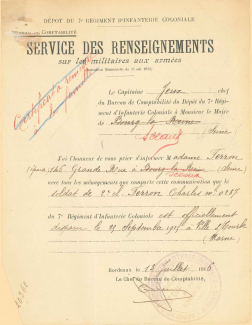 DÉPOT DU 7e RÉGIMENT D'INFANTERIE COLONIALE
BUREAU DE COMPTABILITÉ
SERVICE DES RENSEIGNEMENTS
sur les militaires aux armées
Le Capitaine
du Bureau de Comptabilité du Dépôt du 7e Régiment
d'Infanterie Coloniale à Monsieur le
Maire de Bourg la Reine
Sceaux
(Seine
J'ai l'honneur de vous prier d'informer Madame Ferron
146 Grande Rue à Bourg la Reine (Seine
Sceaux
avec tous les ménagements que comporte cette communication que le
soldat de 2e cl. Ferron Charles no
du 7e Régiment d'Infanterie Coloniale est officiellement
disparu le 29 Septembre 1915 à Ville s/Tourbe
(Marne)
Bordeaux le 17 Juillet 1916
Le Chef du Bureau de Comptabilité,